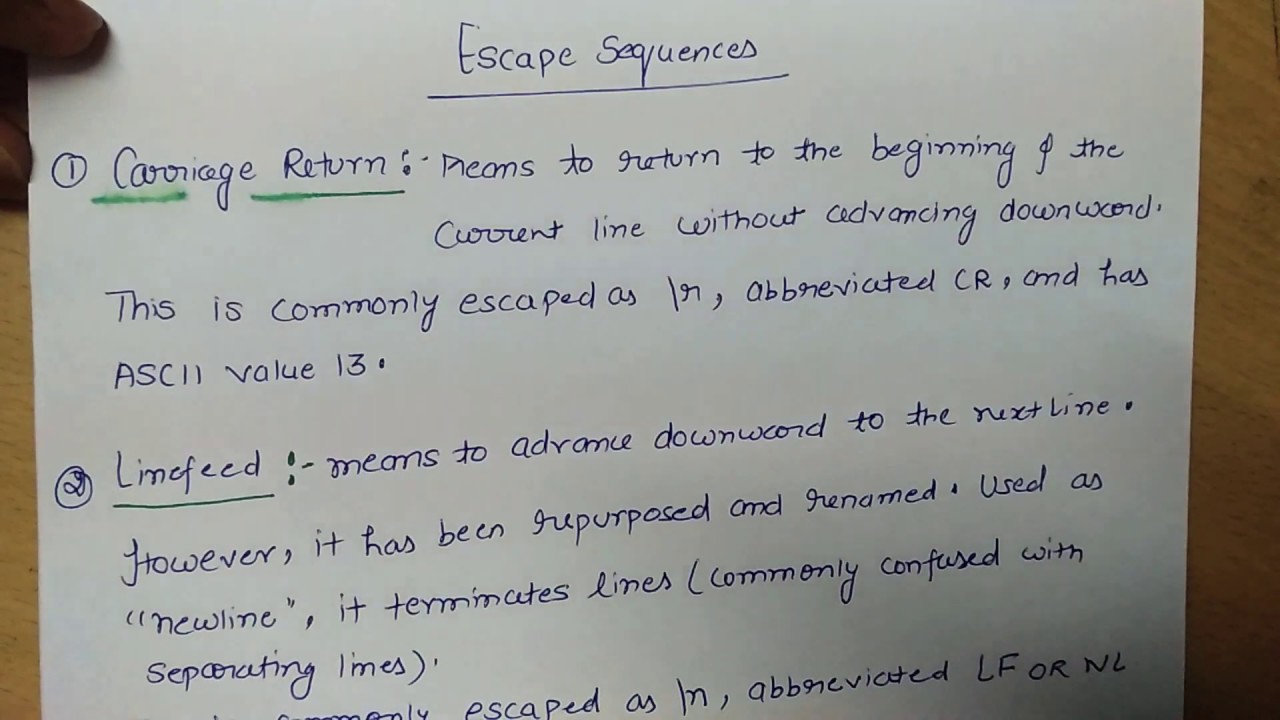 Escape Sequences
① Carriage Return :- Means to return to the beginning of the
current line without advancing downward.
This is commonly escaped as \r, abbreviated CR, and has
ASCII value 13.
② Linefeed :- means to advance downward to the next line.
However, it has been repurposed and renamed. Used as
"newline", it terminates lines (commonly confused with
separating lines).
commonly escaped as \n, abbreviated LF OR NL